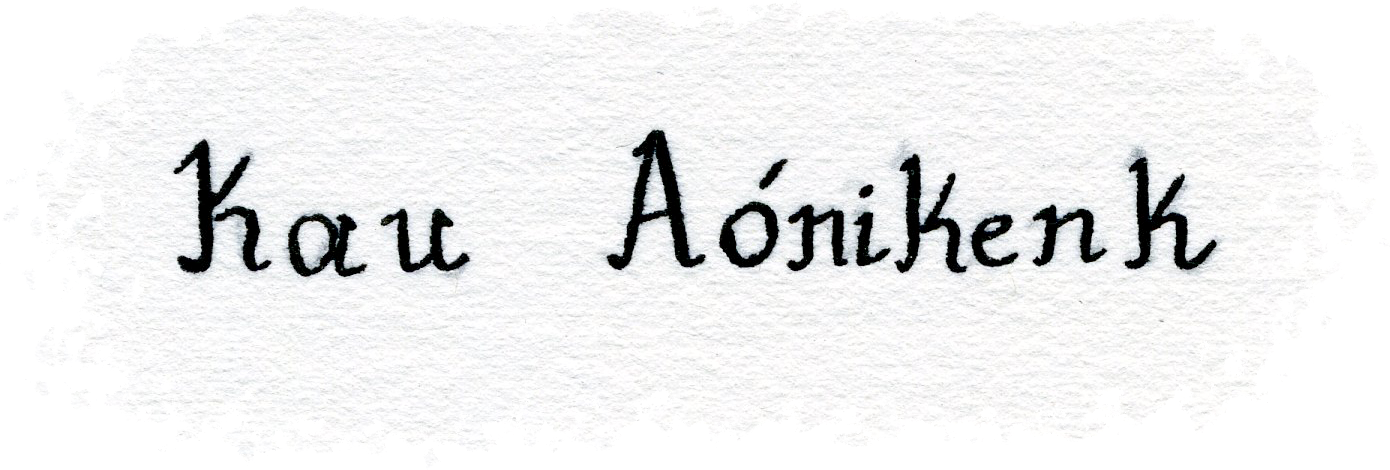 Kau Aónikenk